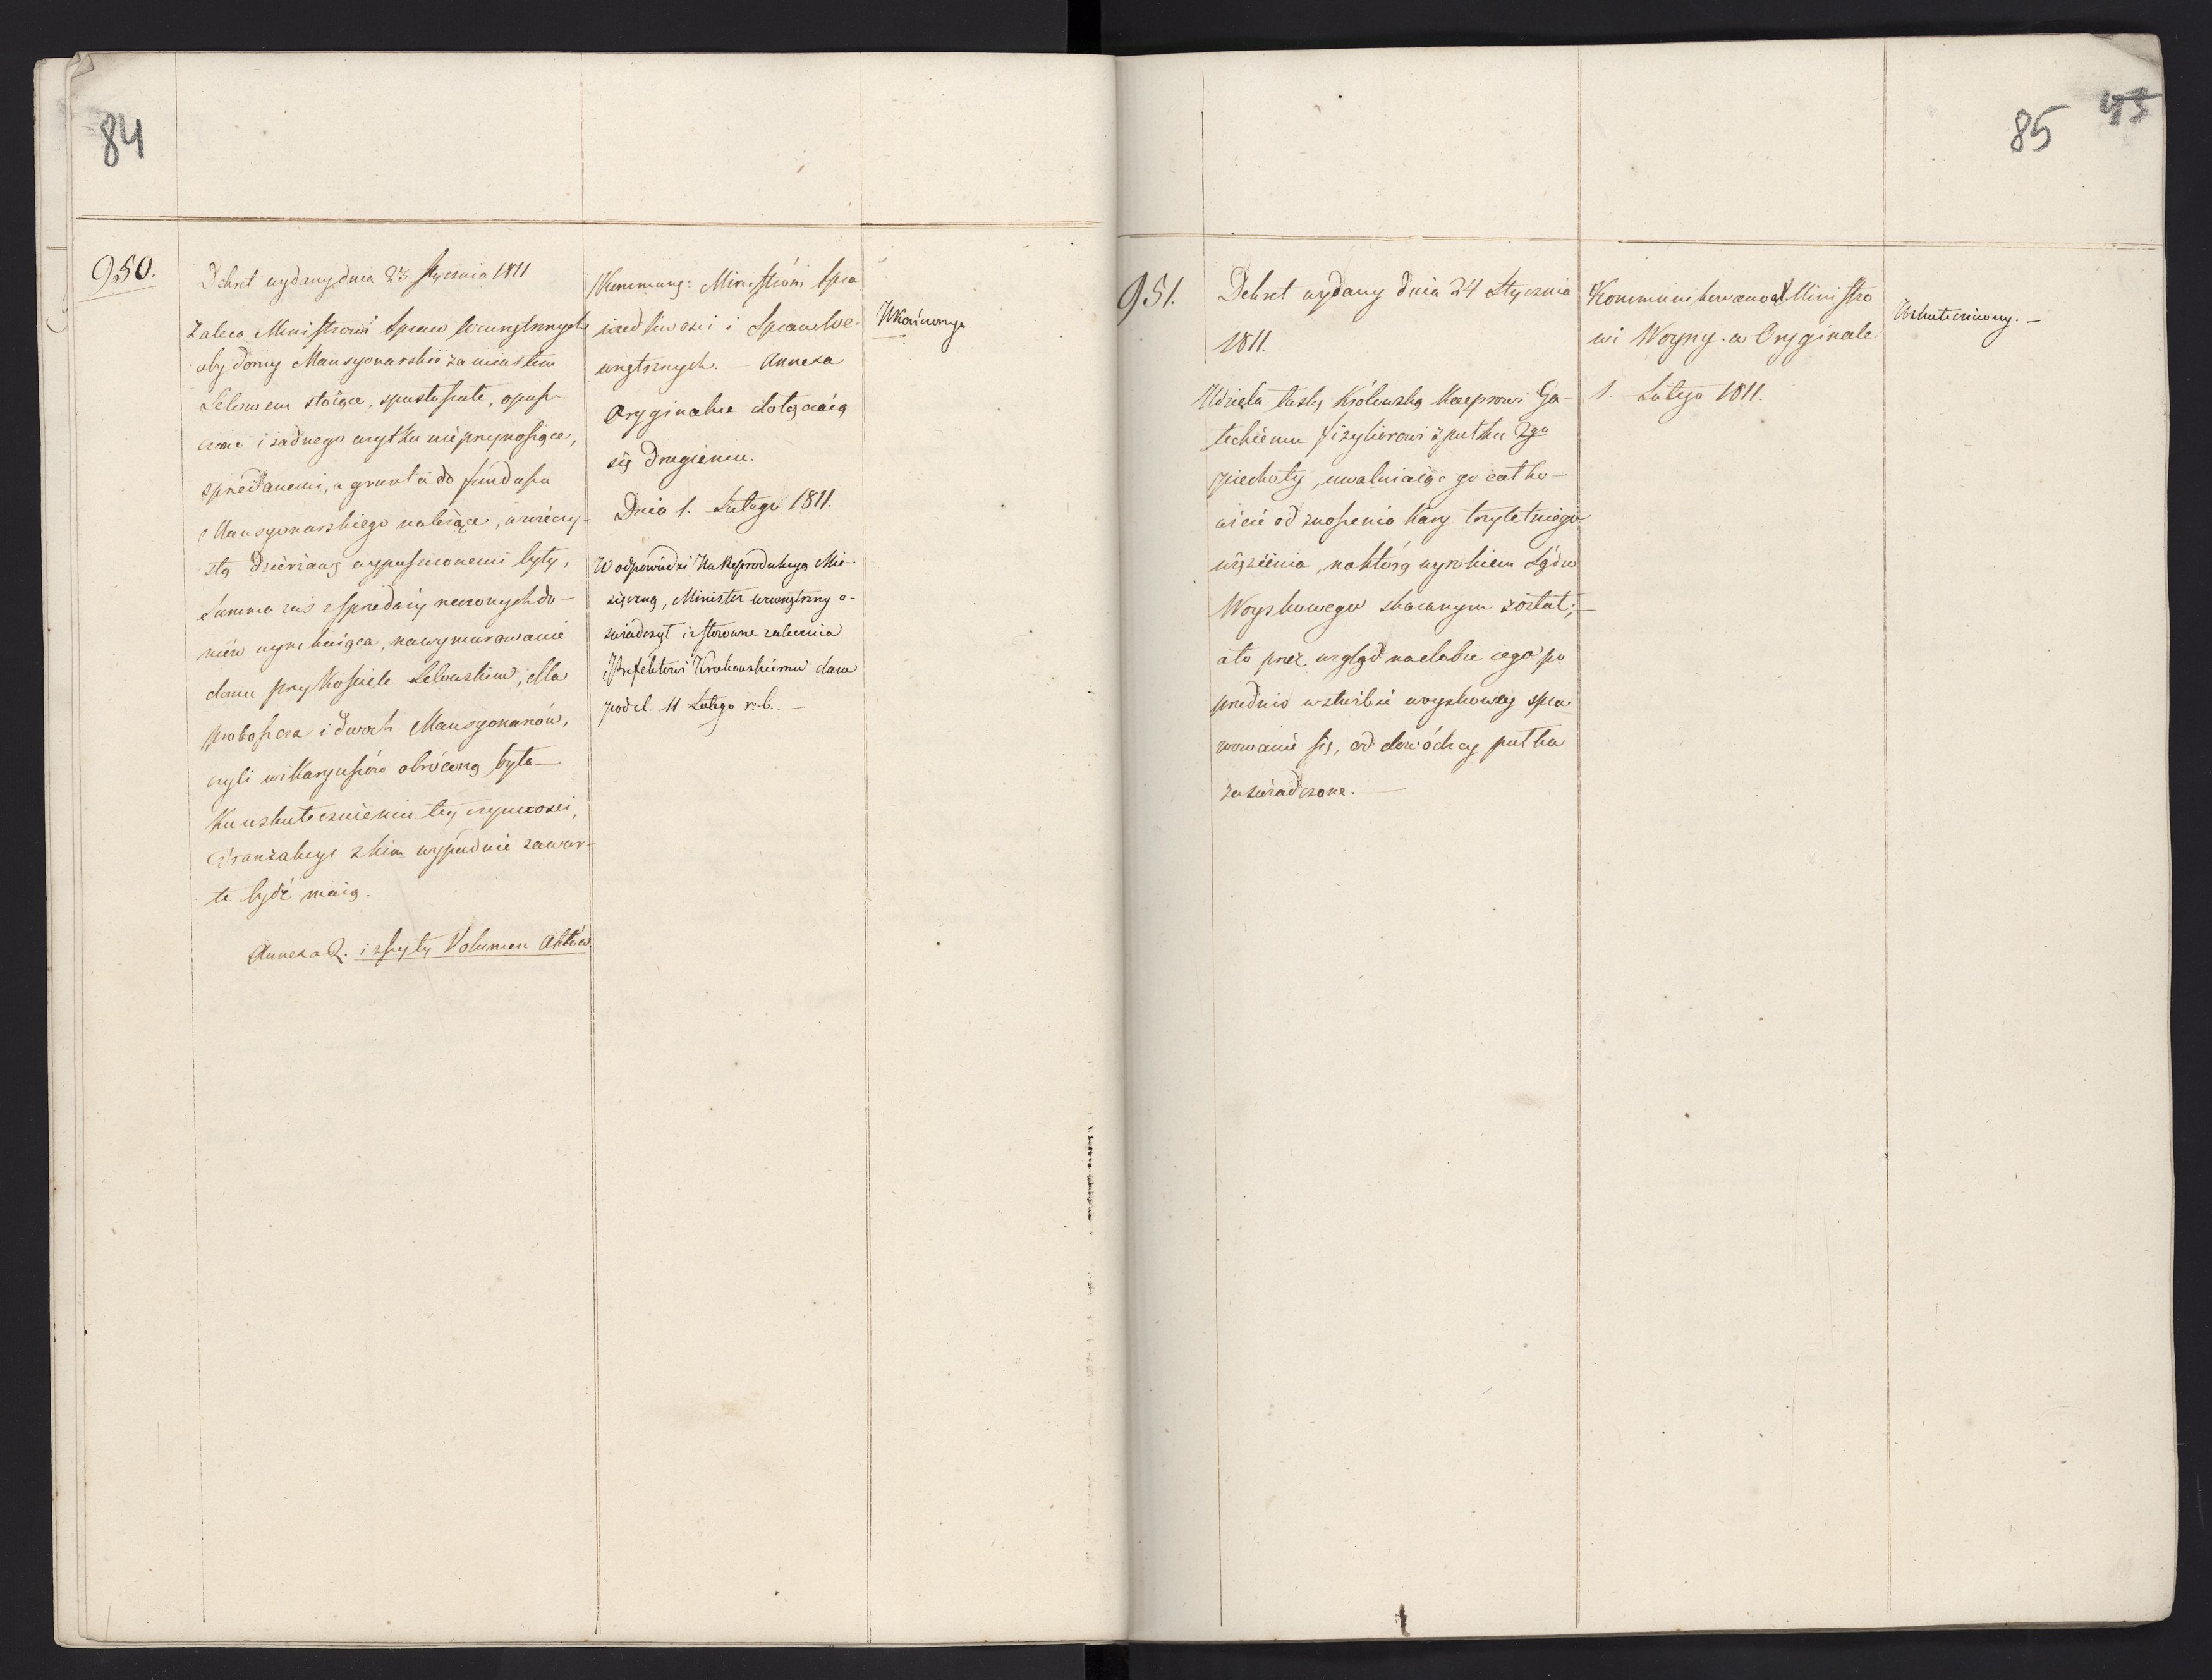 84
950.
Dekret wydany dnia 23 stycznia 1811
Zaleca Ministrowi Spraw Wewnętrznych
aby domy Mansyonarskie za miastem
Lelowem stoiące, spustoszałe, opusz-
czone i żadnego użytku nieprzynoszące,
sprzedanemi, a grunta do funduszu
Mansyonarskiego należące, w wieczy-
stą dzierżawę wypuszczonemi były,
Summa zaś z sprzedaży rzeczonych do-
mów wynikaiąca, na wymurowanie
domu przy Kościele Lelowskim, dla
proboszcza i dwóch Mansyonarzów,
czyli wikaryuszów obróconą była —
Ku uskutecznieniu tey czynności,
tranzakcye z kim wypadnie zawar-
te bydź maią.
Annexa 2. i zszyty Volumen Aktów.
Kommunq: Ministróm Spra
wiedliwości i Spraw We-
wnętrznych. — Annexa
Oryginalne dołączaią
się drugiemu.
Dnia 1. Lutego 1811.
W odpowiedzi Na Reprodukcyą Mie-
sięczną, Minister Wewnętrzny o-
świadczył iż stosowne zalecenia
Prefektowi Krakowskiemu dane
pod d. 11 Lutego r. b. —
Ukończony
85 43
951.
Dekret wydany dnia 24 Stycznia
1811.
Udziela łaskę Królewską Kacprowi Ga-
łeckiemu fizylierowi z pułku 2go
piechoty, uwalniaiąc go całko-
wicie od znoszenia kary trzyletniego
więzienia, na którą wyrokiem Sądu
Woyskowego skazanym został; —
a to przez wzgląd na dobre iego po
przednio w służbie woyskowey spra
wowanie się, od dowódzcy pułku
zaświadczone. —
Kommunikowano d. Ministro
wi Woyny. w Oryginale
1. Lutego 1811.
Uskuteczniony. —